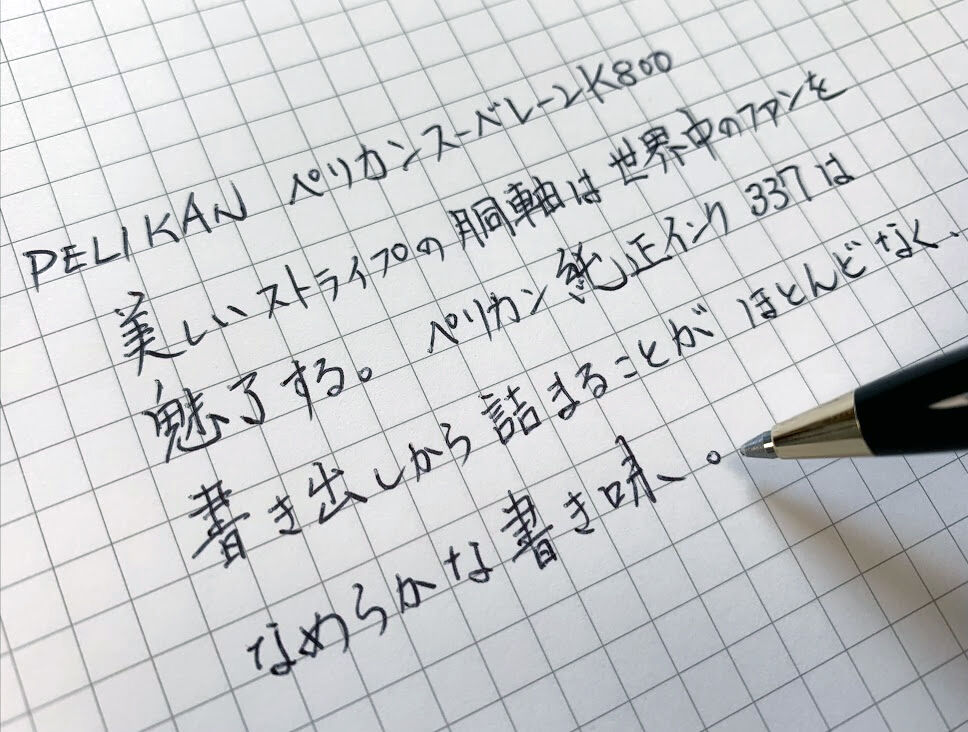 PELIKAN ペリカンスーベレーンK800
美しいストライプの胴軸は世界中のファンを
魅了する。ペリカン純正インク337は
書き出しから詰まることがほとんどなく、
なめらかな書き味。